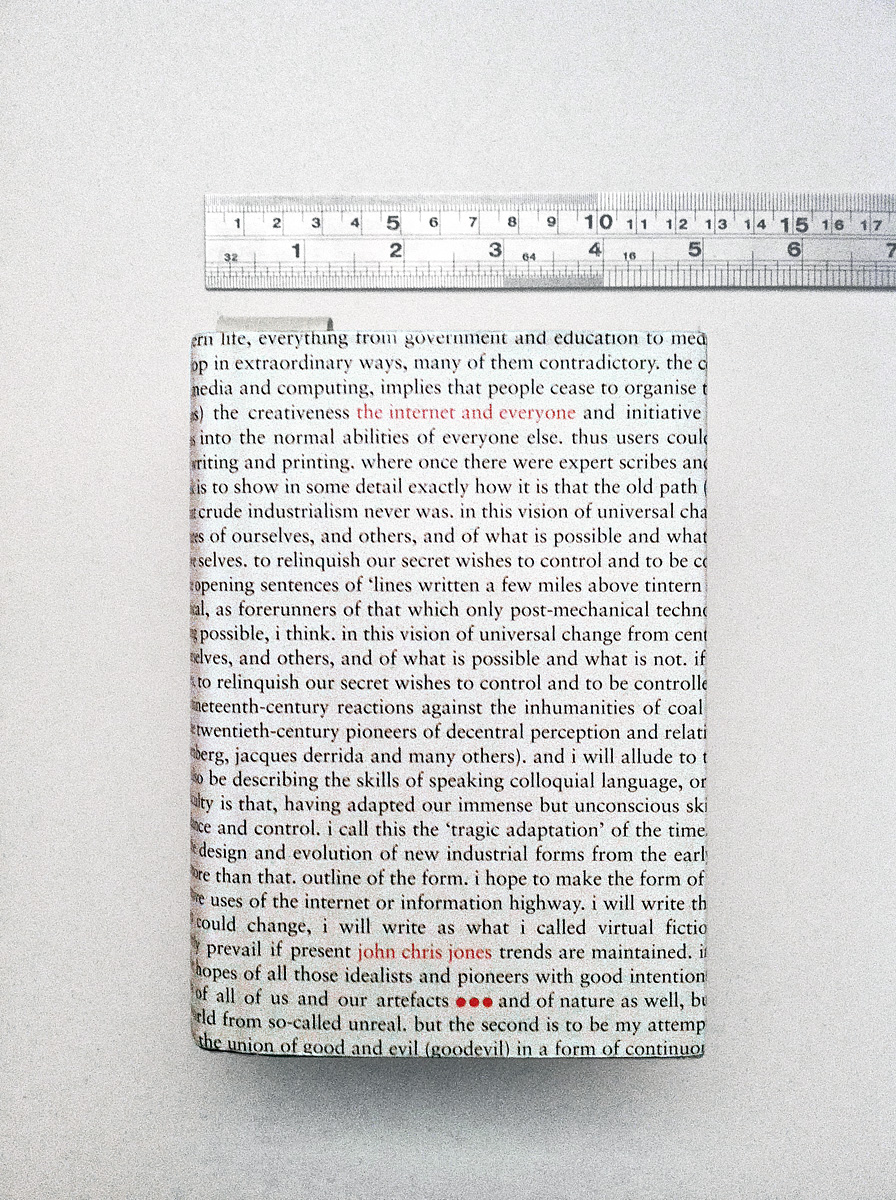 1 2 3 4 5 6 7 8 9 10 11 12 13 14 15 16 17
32 1 2 3 64 4 16 5 6 7
life, everything from government and education to
in extraordinary ways, many of them contradictory. the
and computing, implies that people cease to organise
the creativeness the internet and everyone and initiative
into the normal abilities of everyone else. thus users
and printing. where once there were expert scribes
is to show in some detail exactly how it is that the old path (
crude industrialism never was. in this vision of universal
of ourselves, and others, and of what is possible and what
selves. to relinquish our secret wishes to control and to be
opening sentences of ‘lines written a few miles above tintern
as forerunners of that which only post-mechanical
possible, i think. in this vision of universal change from
and others, and of what is possible and what is not. if
to relinquish our secret wishes to control and to be
reactions against the inhumanities of coal
twentieth-century pioneers of decentral perception and
jacques derrida and many others). and i will allude to
be describing the skills of speaking colloquial language, or
is that, having adapted our immense but unconscious
and control. i call this the ‘tragic adaptation’ of the time
design and evolution of new industrial forms from the
than that. outline of the form. i hope to make the form of
uses of the internet or information highway. i will write
could change, i will write as what i called virtual
prevail if present john chris jones trends are maintained.
hopes of all those idealists and pioneers with good
of all of us and our artefacts ●●● and of nature as well,
from so-called unreal. but the second is to be my
the union of good and evil (goodevil) in a form of